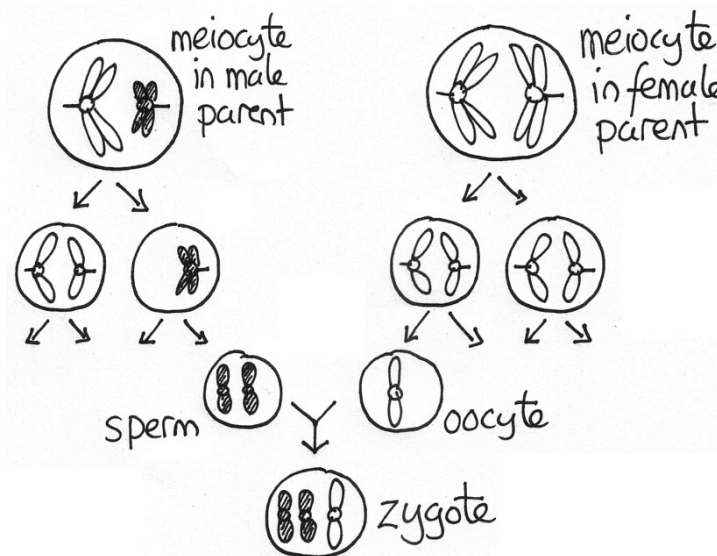 meiocyte
in male
parent
meiocyte
in female
parent
sperm
oocyte
zygote